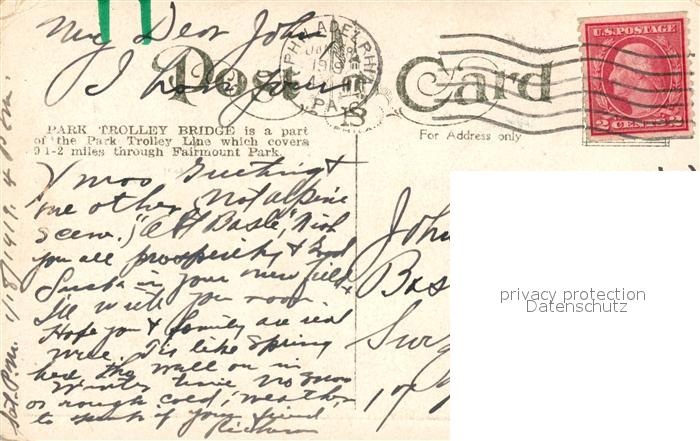 My Dear John
Post Card
PHILADELPHIA
PA.
I have your
U.S. POSTAGE
2 CENTS 2
PARK TROLLEY BRIDGE is a part
of the Park Trolley Line which covers
9 1-2 miles through Fairmount Park.
For Address only
Xmas Greeting &
one other (not alpine
scene.) "Basle", Wish
you all prosperity & Good
Luck in your new field &
I'll write you soon.
Hope you & family are real
well. Tis like Spring
here, the well on in
Winter time no snow
or rough cold, weather
to speak of your friend
Sat. P.M. 1/18/1919. 4 P.M.
John
Bas
privacy protection
Datenschutz